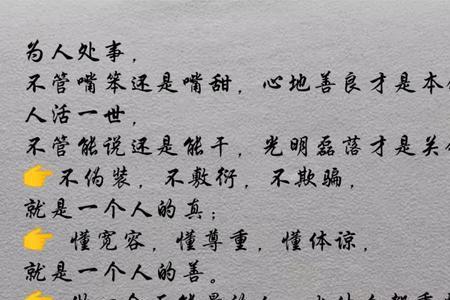 为人处事，
不管嘴笨还是嘴甜，心地善良才是本
人活一世，
不管能说还是能干，光明磊落才是关
👉不伪装，不敷衍，不欺骗，
就是一个人的真；
👉 懂宽容，懂尊重，懂体谅，
就是一个人的善。